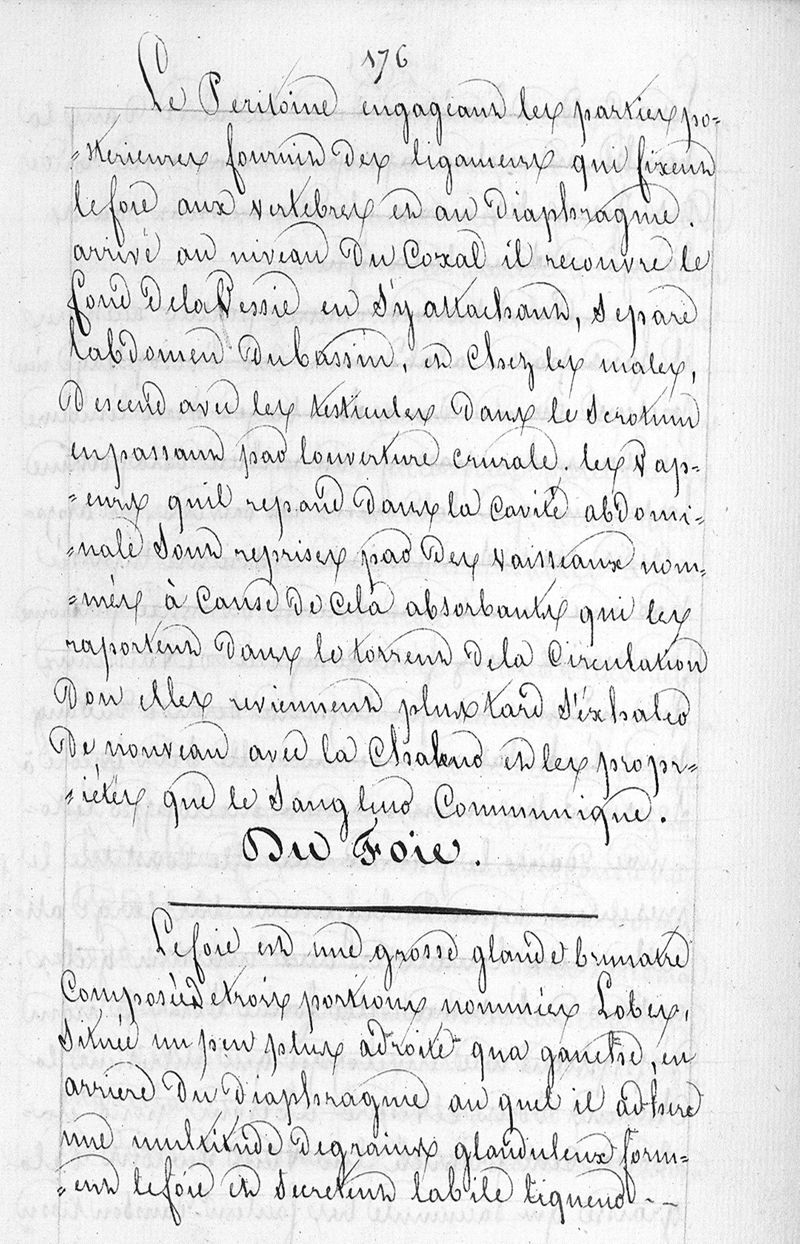 176
Le Peritoine engageant les parties po-
-sterieures fournit des ligamens qui fixent
le foie aux vertebres et au diaphragme.
arrivé au niveau du Coxal il recouvre le
fond dela Vessie en S'y attachant, Separe
labdomen du bassin, et Chez les males,
Descend avec les testicules dans le Scrotum
en passant par louverture Crurale. les Vap-
-eurs quil repand dans la Cavité abdomi-
-nale Sont reprises par des Vaisseaux nom-
-més à Cause de Cela absorbants qui les
raportent dans le torrent dela Circulation
Don elles reviennent plus tard S'éxhaler
De nouveau avec la Chaleur et les propr-
-iétés que le Sang leur Communique.
Du Foie.
Le foie est une grosse glande brunatre
Composée de trois portions nommées Lobes,
Située un peu plus adroite qua gauche, en
arriere du diaphragme au quel il adhere
une multitude de grains glanduleux form-
-ent le foie et Secretent labile liqueur